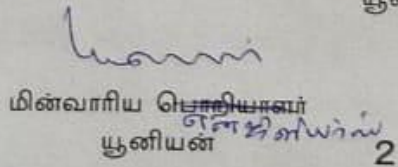 யூனி
மின்வாரிய பொறியாளர்
என்ஜினியர்ஸ்
யூனியன்
2